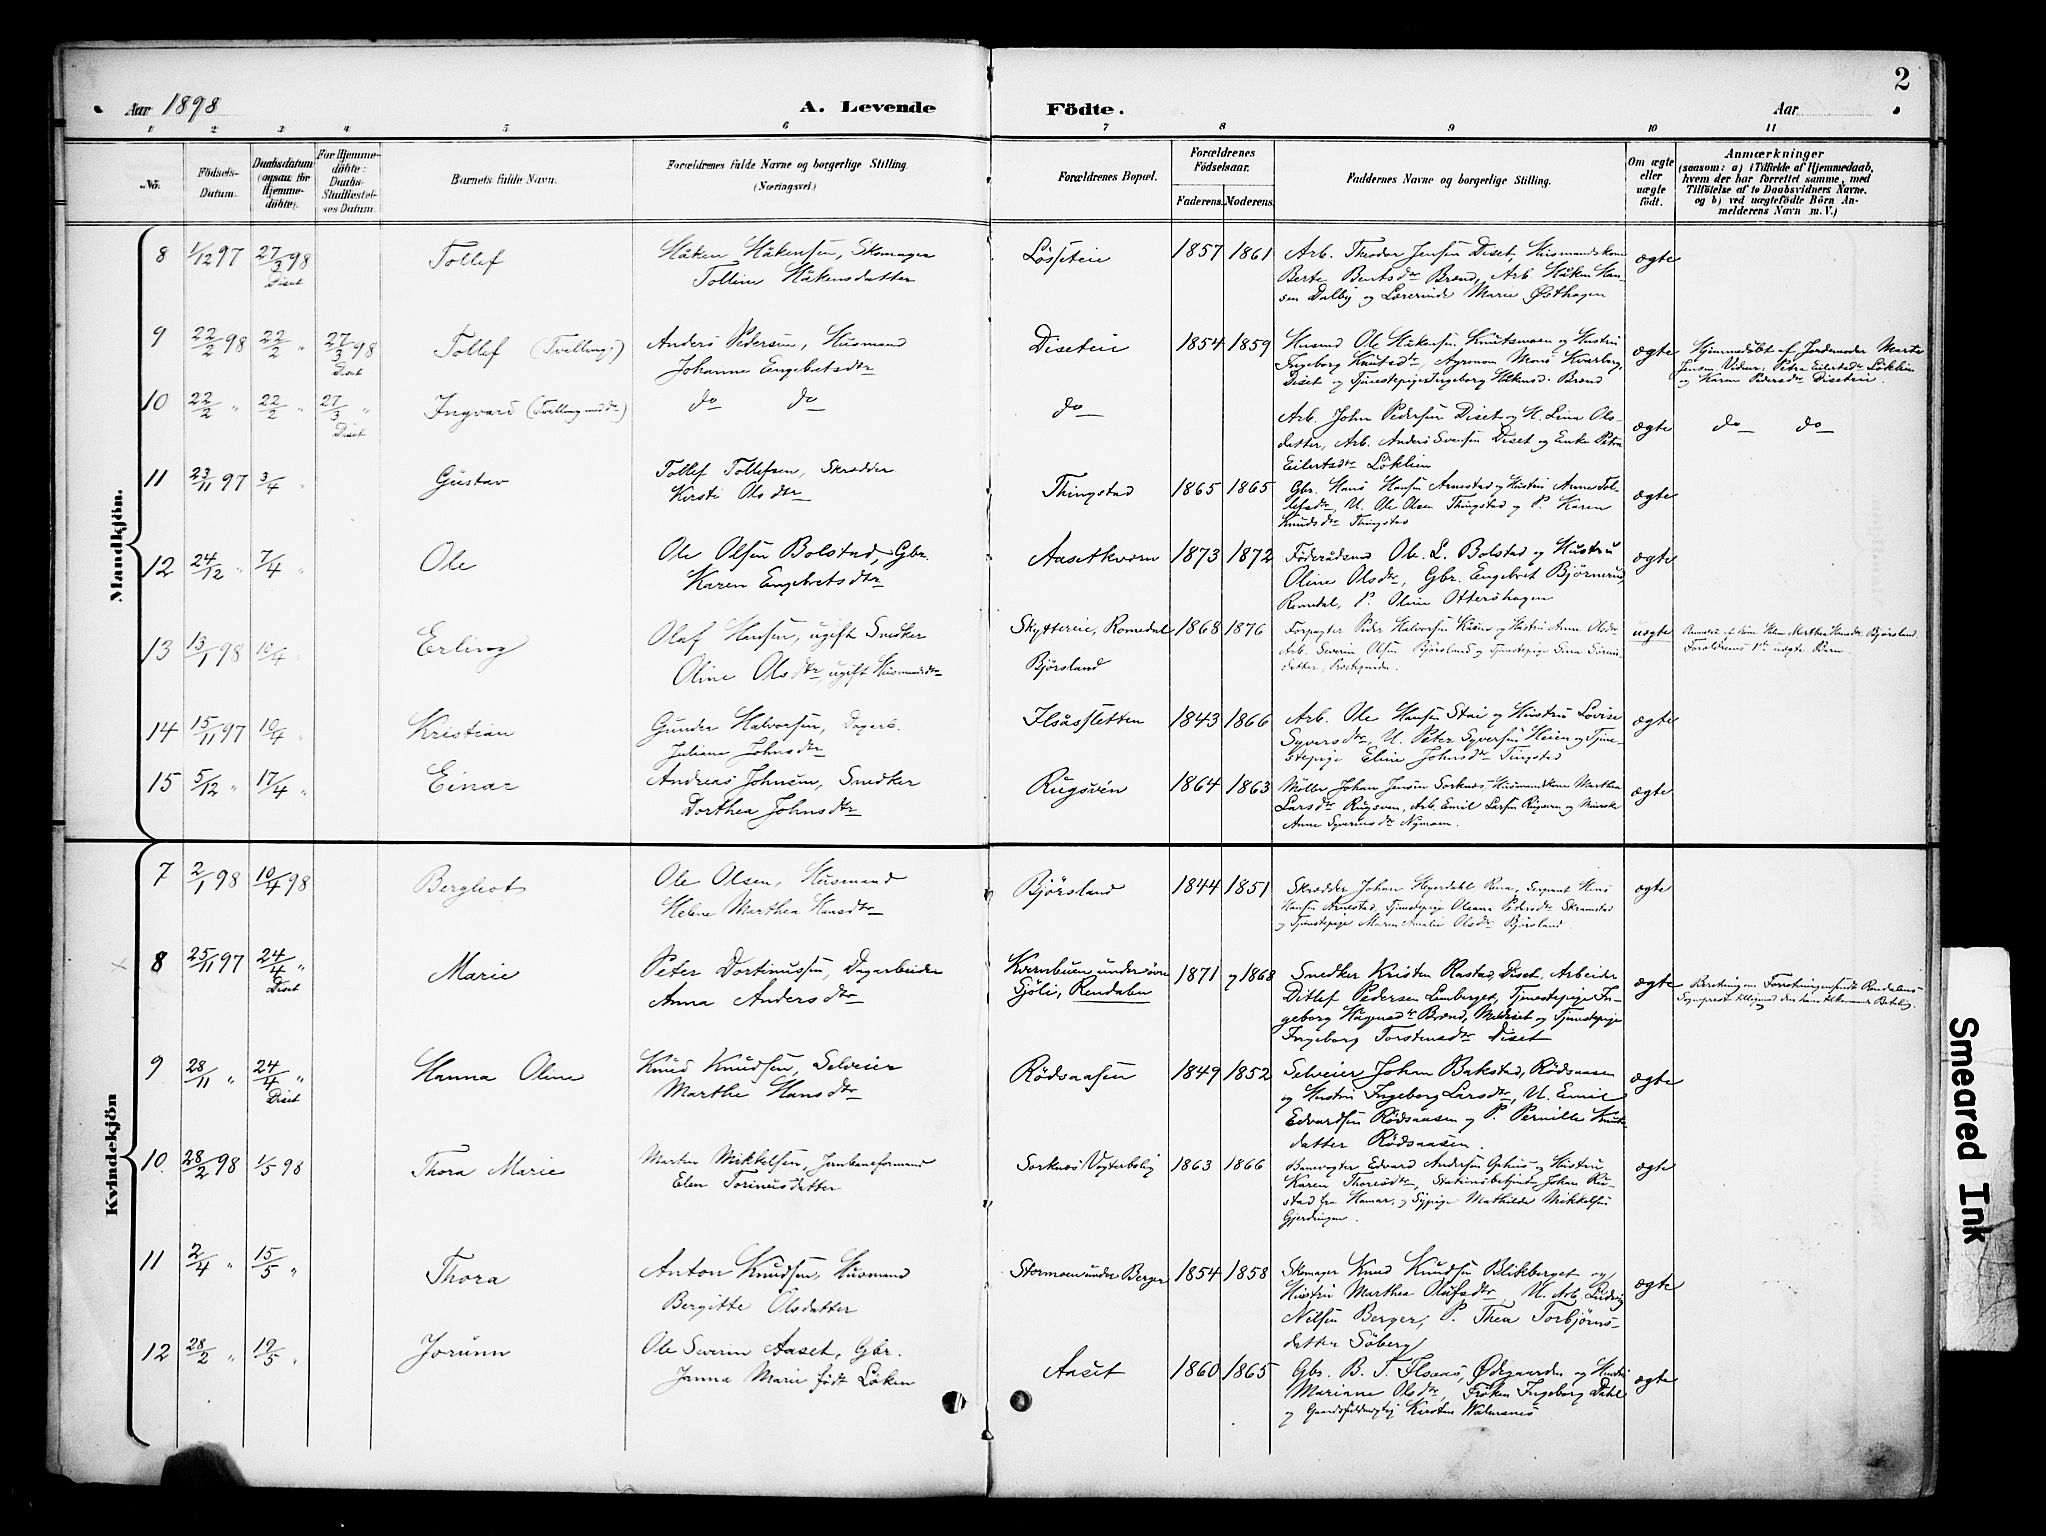 2
Aar 1898
A. Levende
Födte.
Aar
1 2 3 4 5 6 7 8 9 10 11
No.
Födsels-Datum.
Daabsdatum (ogsaa for Hjemmedöbte).
For Hjemmedöbte: Daabs-Stadfæstelses Datum.
Barnets fulde Navn.
Forældrenes fulde Navne og borgerlige Stilling.
(Næringsvei.)
Forældrenes Bopæl.
Forældrenes Födselsaar.
Faderens.
Moderens.
Faddernes Navne og borgerlige Stilling.
Om ægte eller uægte födt.
Anmærkninger
(saasom: a) i Tilfælde af Hjemmedaab,
hvem der har forrettet samme, med
Tilföielse af to Daabsvidners Navne.
og b) ved uægtefödte Börn Anmelderens Navn m. V.)
Mandkjön.
8 1/12 97 27/3 98 Diset Tollef
Håken Håkensen, Skomager
Tolline Håkensdatter
Løsseteie 1857 1861
Arb. Theodor Jensen Diset, Husmandskone
Berte Bentsdtr Brænd, Arb. Håken Hansen
Dalby og Lærerinde Marie Østhagen
ægte
9 22/2 98 22/2 " 27/3 98 Diset Tollef (Tvilling:)
Anders Pedersen, Husmand
Johanne Engebretsdtr
Diseteie 1854 1859
Husmd Ole Håkensen Knutsmoen og Hustru
Ingeborg Knutsdtr, Agronom Mons Kvarberg,
Diset og Tjenestepige Ingeborg Håkensd. Brænd
ægte
Hjemmedöbt af Jordemoder Marte
Jensen. Vidner: Petra Eilertsdtr Löklien
og Karen Pedersdtr Diseteie.
10 22/2 " 22/2 " 27/3 " Diset Ingvard (Tvilling med do)
do do
do
Arb. John Pedersen Diset og H. Lina Olsdatter,
Arb. Anders Svensen Diset og Enke Petra
Eilertsdtr Löklien
ægte
do do
11 23/11 97 3/4 " Gustav
Tollef Tollefsen, Skrædder
Kirsti Olsdtr
Thingstad 1865 1865
Gbr. Hans Hansen Arnestad og Hustru Anne Tollefsdtr,
U. Ole Olsen Thingstad og P. Karen
Knudsdtr Thingstad
ægte
12 24/12 " 7/4 " Ole
Ole Olsen Bolstad, Gbr.
Karen Engebretsdtr
Aasetkværn 1873 1872
Föderådsmd Ole L. Bolstad og Hustru
Oline Olsdtr, Gbr. Engebret Björnerud,
Romedal, P. Oline Ottershagen
ægte
13 13/1 98 10/4 Erling
Olaf Hansen, ugift Snedker
Oline Olsdtr, ugift Husmandsdtr
Skyttereie, Romedal
Björsland
1868 1876
Forpagter Peder Halvorsen og Hustru Anne Olsdtr
Arb. Severin Olsen Björsland og Tjenestepige
uægte
Björsland.
Forældrenes 1ste uægte Barn.
14 15/11 97 10/4 " Kristian
Gunder Halvorsen, Dagarb.
Juliane Johnsdtr
Ilsåssletten 1843 1866
Arb. Ole Hansen Stai og Hustru Lovise
Syversdtr, U. Peter Syversen Heien og Tjenestepige
Eline Johnsdtr Tingstad
ægte
15 5/12 " 17/4 " Einar
Andreas Johnsen, Snedker
Dorthea Johnsdtr
Rugsvén 1864 1863
Möller Johan Jensen Sorknæs, Husmandskone Marthea
Larsdtr Rugsven, Arb. Emil Larsen Rugsven og
Anne Syverinsdtr Nymoen.
ægte
Kvindekjön
7 2/1 98 10/4 98 Bergliot
Ole Olsen, Husmand
Helene Marthea Hansdtr
Björsland 1844 1851
Skrædder Johan Heyerdahl Rena, Sergeant Hans
Hansen Arnestad, Tjenestepige Oleana Pedersdtr Skramstad
og Tjenestepige Maren Amalie Olsdtr Björsland.
ægte
8 25/11 97 24/4 " Diset Marie
Peter Dortinussen, Dagarbeider
Anna Andersdtr
Kvernbuen under övre
Sjöli, Rendalen
1871 og 1868
Snedker Kristen Rastad, Diset, Arbeider
Ditlef Pedersen Lomberget, Tjenestepige Ingeborg
Hågensdtr Brænd, og Tjenestepige
Ingeborg Torstensdtr Diset
ægte
Beretning om Forretningen sendt Rendalens
Sogneprest tilligemed den ham tilkommende Betaling.
9 28/11 " 24/4 " Diset Hanna Oline
Knud Knudsen, Selveier
Marthe Hansdtr
Rödsaasen 1849 1852
Selveier Johan Bakstad, Rödsaasen
og Hustru Ingeborg Larsdtr, U. Emil
Edvardsen Rödsaasen og P. Pernille Knutsdatter
Rödsaasen.
ægte
10 28/2 98 1/5 98 Thora Marie
Martin Mikkelsen, Jernbaneformand
Elen Torinusdatter
Sorknæs Vogterbolig 1863 1866
Banevogter Edvard Andersen Ophus og Hustru
Karen Thoresdtr, Stationsbetjent Johan Rustad
fra Hamar, og Sypige Mathilde Mikkelsen
Gjerdringen.
ægte
11 2/4 " 15/5 " Thora
Anton Knudsen, Husmand
Bergitte Olsdatter
Stormoen under Berger 1854 1858
Skomager Knud Knudsen Blikberget og
Hustru Marthea Olufsdtr, U. Arb. Ludvig
Nilsen Berger, P. Thea Torbjörnsdatter
Söberg
ægte
12 28/2 " 19/5 " Jorunn
Ole Sverin Aaset, Gbr.
Janna Marie födt Löken
Aaset 1860 1865
Gbr. B. T. Ilsaas, Ødegaarden og Hustru
Mariane Olsdtr, Fröken Ingeborg Dahl
og Gaardsfuldmægtig Kirsten
ægte
Smeared Ink